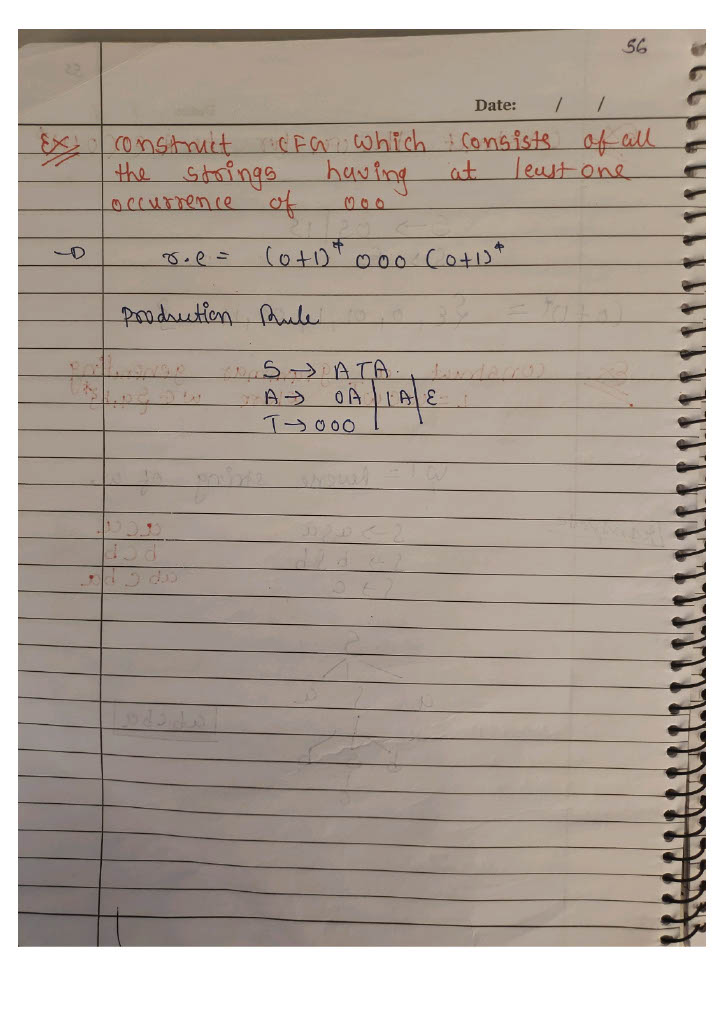 56
Date: / /
Ex: construct CFG which consists of all
the strings having at least one
occurrence of 000
→ r.e = (0+1)* 000 (0+1)*
production Rule
S → ATA
A → 0A | 1A | ε
T → 000